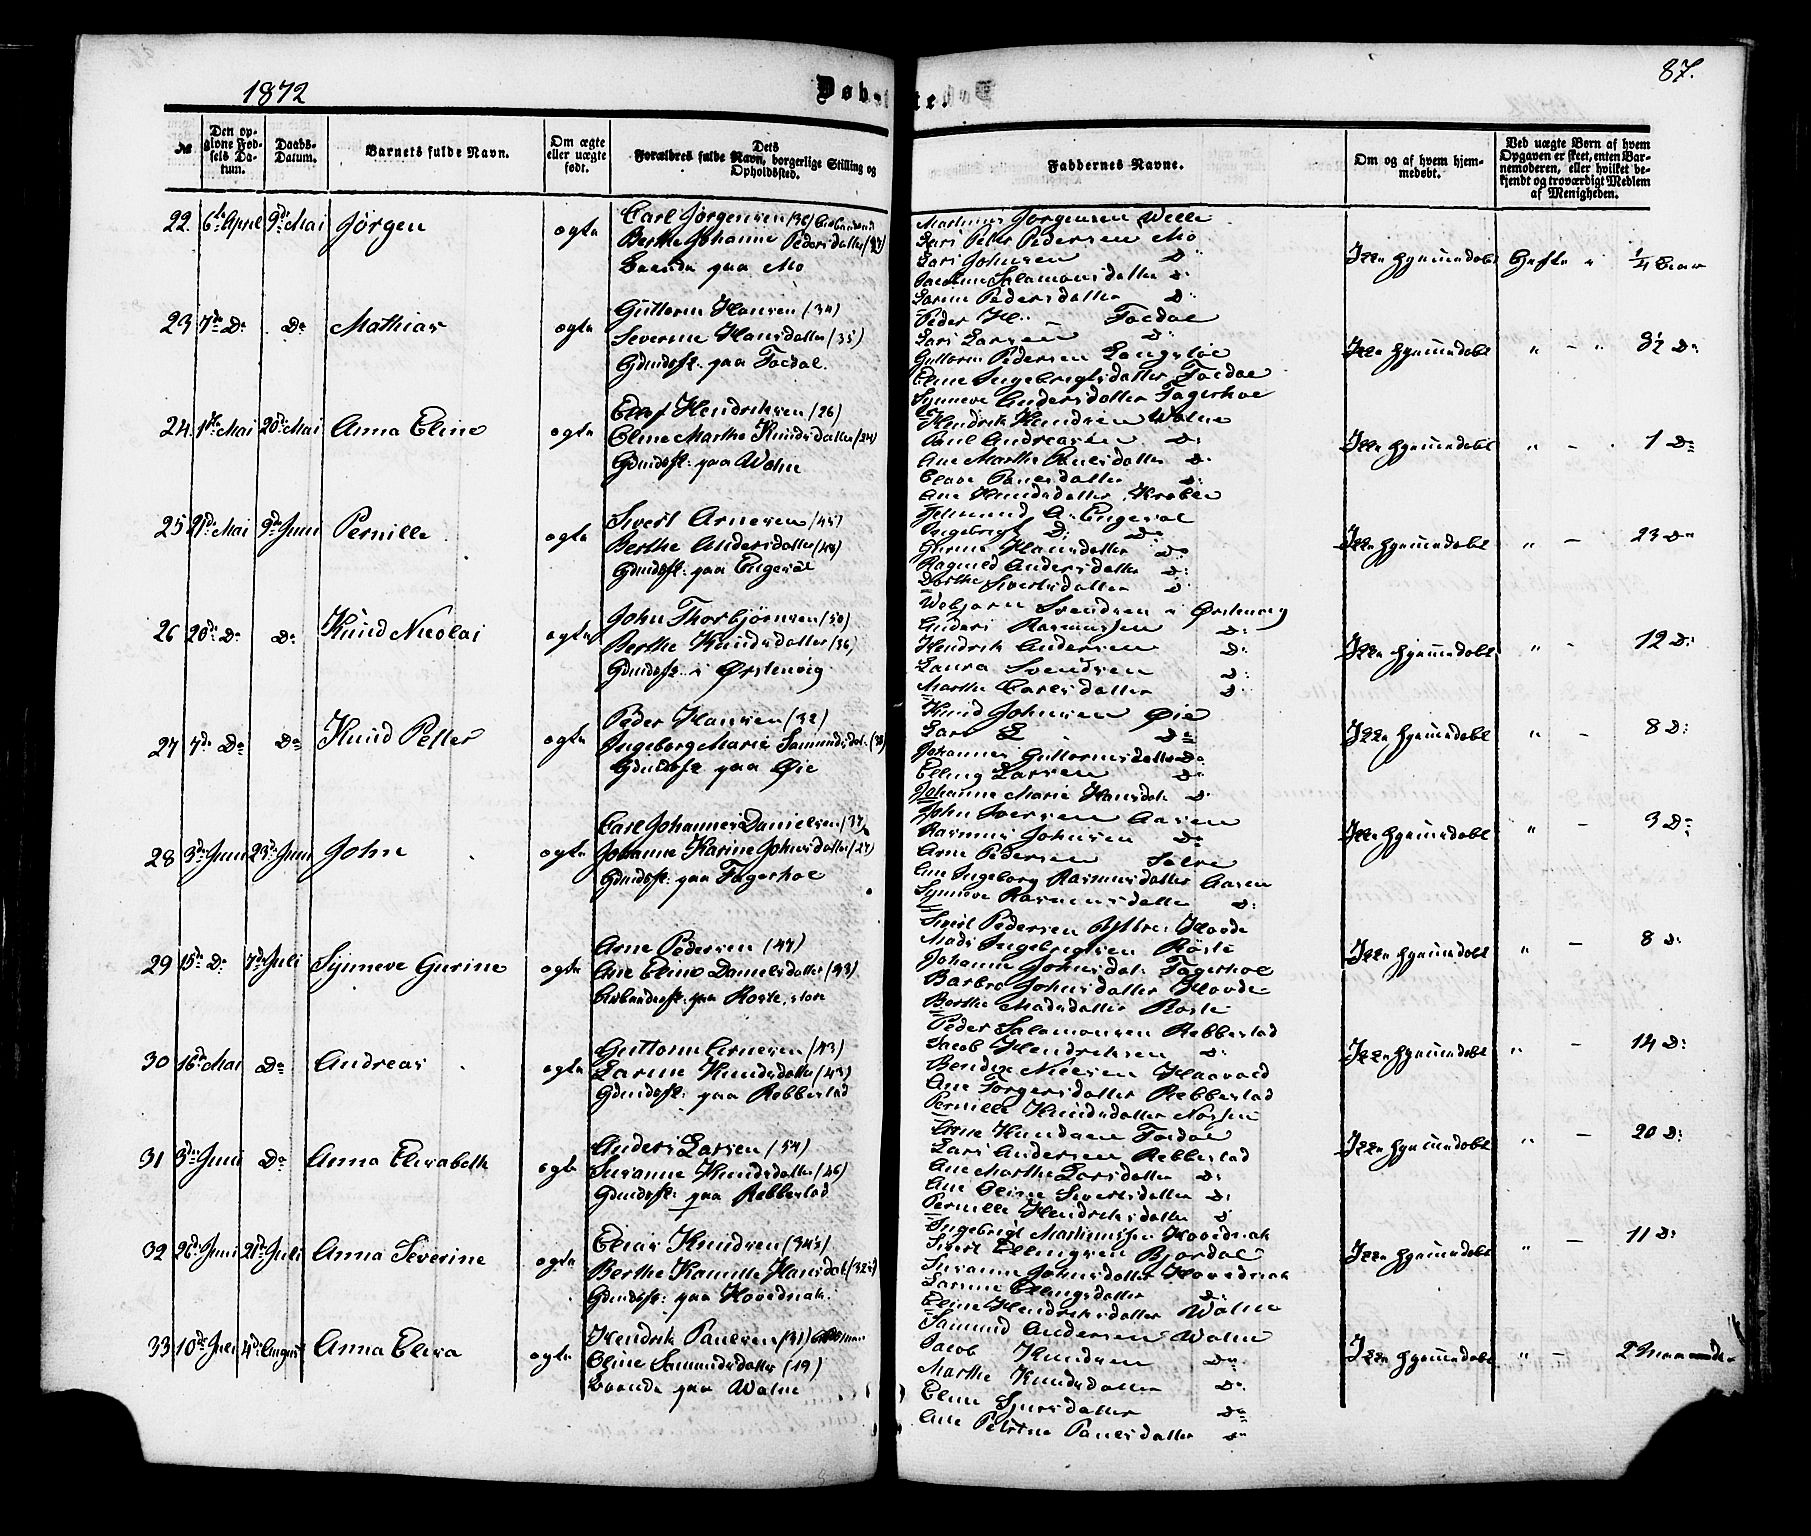 1872
Døbte.
87.
No
Den opgivne Fødsels Datum.
Daabs-Datum.
Barnets fulde Navn.
Om ægte eller uægte født.
Dets Forældres fulde Navn, borgerlige Stilling og Opholdssted.
Faddernes Navne.
Om og af hvem hjemmedøbt.
Ved uægte Børn af hvem Opgaven er skeet, enten Barnemoderen, eller hvilket bekjendt og troværdigt Medlem af Menigheden.
22. 6te April 9de Mai Jørgen ægte
Carl Jørgensen (36)
Berthe Johanne Pedersdatter (27)
Boende paa Mo
Martinus Jørgensen Welle
Lars Peter Pedersen Mo
Lars Johnsen D:
Jacobine Salamonsdatter D:
Larine Pedersdatter D:
Ikke hjemmedøbt Gifte " 1/4 Aar
23 7de De De Mathias ægte
Guttorm Hansen (34)
Severine Hansdatter (35)
Gbmdsf. paa Foldal.
Peder H: Foldal
Lars Larsen D:
Guttorm Pedersen Langsløe
Eline Ingebrigtsdatter Foldal
Synneve Andersdatter Fagerhol
Ikke hjemmedøbt " - " 3 1/2 De
24. 1ste Mai 20de Mai Anna Eline ægte
Elias Hendriksen (26)
Eline Marthe Knudsdatter (24)
Gbmdsf: paa Wolne
Hendrik Knudsen Wolne
Paul Andreasen D:
Ane Marthe Paulsdatter D:
Paulsdatter D:
Ane Knudsdatter
Ikke hjemmedøbt " - 1 De
25 21de Mai 9de Juni Pernille ægte
Sivert Arnesen (45)
Berthe Andersdatter (40)
Gbmdsf: paa Engeset
A. Engeset
Ingebrigt D: De
Hansdatter De
Ragnild Andersdatter D:
Dorthe Sivertsdatter D
Ikke hjemmedøbt " - 23 De
26 20de De De Knud Nicolai ægte
John Thorbjørnsen (50)
Berthe Knudsdatter (36)
Gbmdsf. i Ørstenvig
Webjørn Svendsen i Ørstenvig
Anders Rasmussen D:
Hendrik Andersen D:
Laura Svendsen D:
Marthe Carlsdatter D:
Ikke hjemmedøbt " - 12 D:
27 7de De De Knud Petter ægte
Peder Hansen (32)
Ingeborg Marie Samundsdat. (38)
Gbmdsf paa Øie
Knud Johnsen Øie
Lars L De
Johannes Guttormsdatter De
Elling Larsen De
Johanne Marie Hansdat. D:
Ikke hjemmedøbt " - 8 D:
28 3de Juni 23de Juni John ægte
Carl Johannes Danielsen (37)
Johanne Karine Johnsdatter (27)
Gbmdsf: paa Fagerhol
John Iversen Aasen
Rasmus Johnsen De
Arne Pedersen
Ane Ingeborg Rasmusdatter Aasen
Synneve Rasmusdatter D:
Ikke hjemmedøbt " - 3 De
29 15de De 7de Juli Synneve Gurine ægte
Arne Pedersen (47)
Ane Eline Danielsdatter (43)
paa Roste, store
Sivert Pedersen Yttre Hovde
Mads Ingebrigtsen Røste
Johanne Johnsdat. Fagerhol
Barbro Johnsdatter Hovde
Berthe Madsdatter Røste
Ikke hjemmedøbt " - 8 D:
30 16de Mai De Andreas ægte
Guttorm Arnesen (43)
Larine Knudsdatter (43)
Gbmdsf: paa Rebbestad
Peder Salamonsen Rebbestad
Jacob Hendriksen D:
Bendix Nielsen Haavold
Ane Torgersdatter Rebbestad
Pernille Knudsdatter
Ikke hjemmedøbt " - 14 D:
31 3de Juni De Anna Elisabeth ægte
Anders Larsen (54)
Susanne Knudsdatter (46)
Gbmdsf: paa Rebbestad
Arne Knudsen Foldal
Lars Andersen Rebbestad
Ane Marthe Larsdatter D:
Ane Oline Sivertsdatter D:
Pernille Hendriksdatter D
Ikke hjemmedøbt " - 20 D:
32 26de Juni 21de Juli Anna Severine ægte
Elias Knudsen (34½)
Berthe Kamilla Hansdat. (32½)
Gbmdsf: paa Hovednak.
Ingebrigt Martinussen Hovednak
Sivert Ellingsen Bjørdal
Susanne Johnsdatter Hovednak
Larine Ellingsdatter D:
Eline Hendriksdatter Wolne
Ikke hjemmedøbt " - 11 D:
33 10de Juli 4de August Anna Elisa ægte
Hendrik Paulsen (31)
Eline Samundsdatter (19)
Boende paa Wolne
Samund Andersen Wolne
Jacob Knudsen De
Marthe Knudsdatter D:
Eline Sjursdatter De
Ane Petrine Paulsdatter De
Ikke hjemmedøbt " - 2 Maaneder